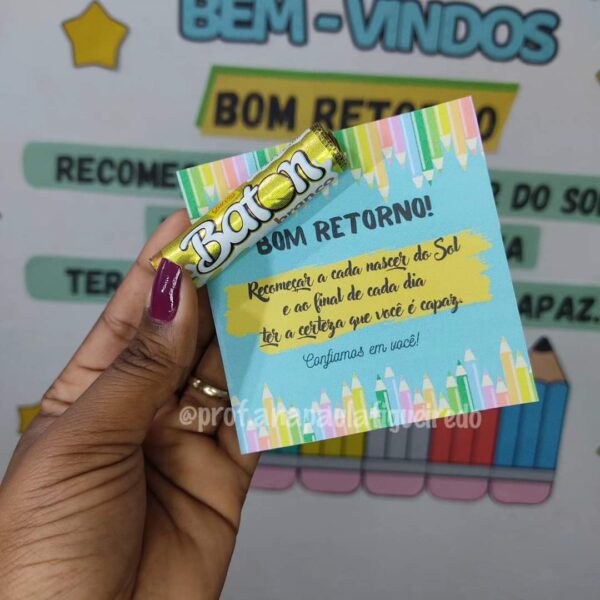 BEM-VINDOS
BOM RETORNO
RECOMEÇ
R DO SOL
TER
APAZ.
Baton
branco
BOM RETORNO!
Recomeçar a cada nascer do Sol
e ao final de cada dia
ter a certeza que você é capaz.
Confiamos em você!
@prof.anapaulafigueiredo